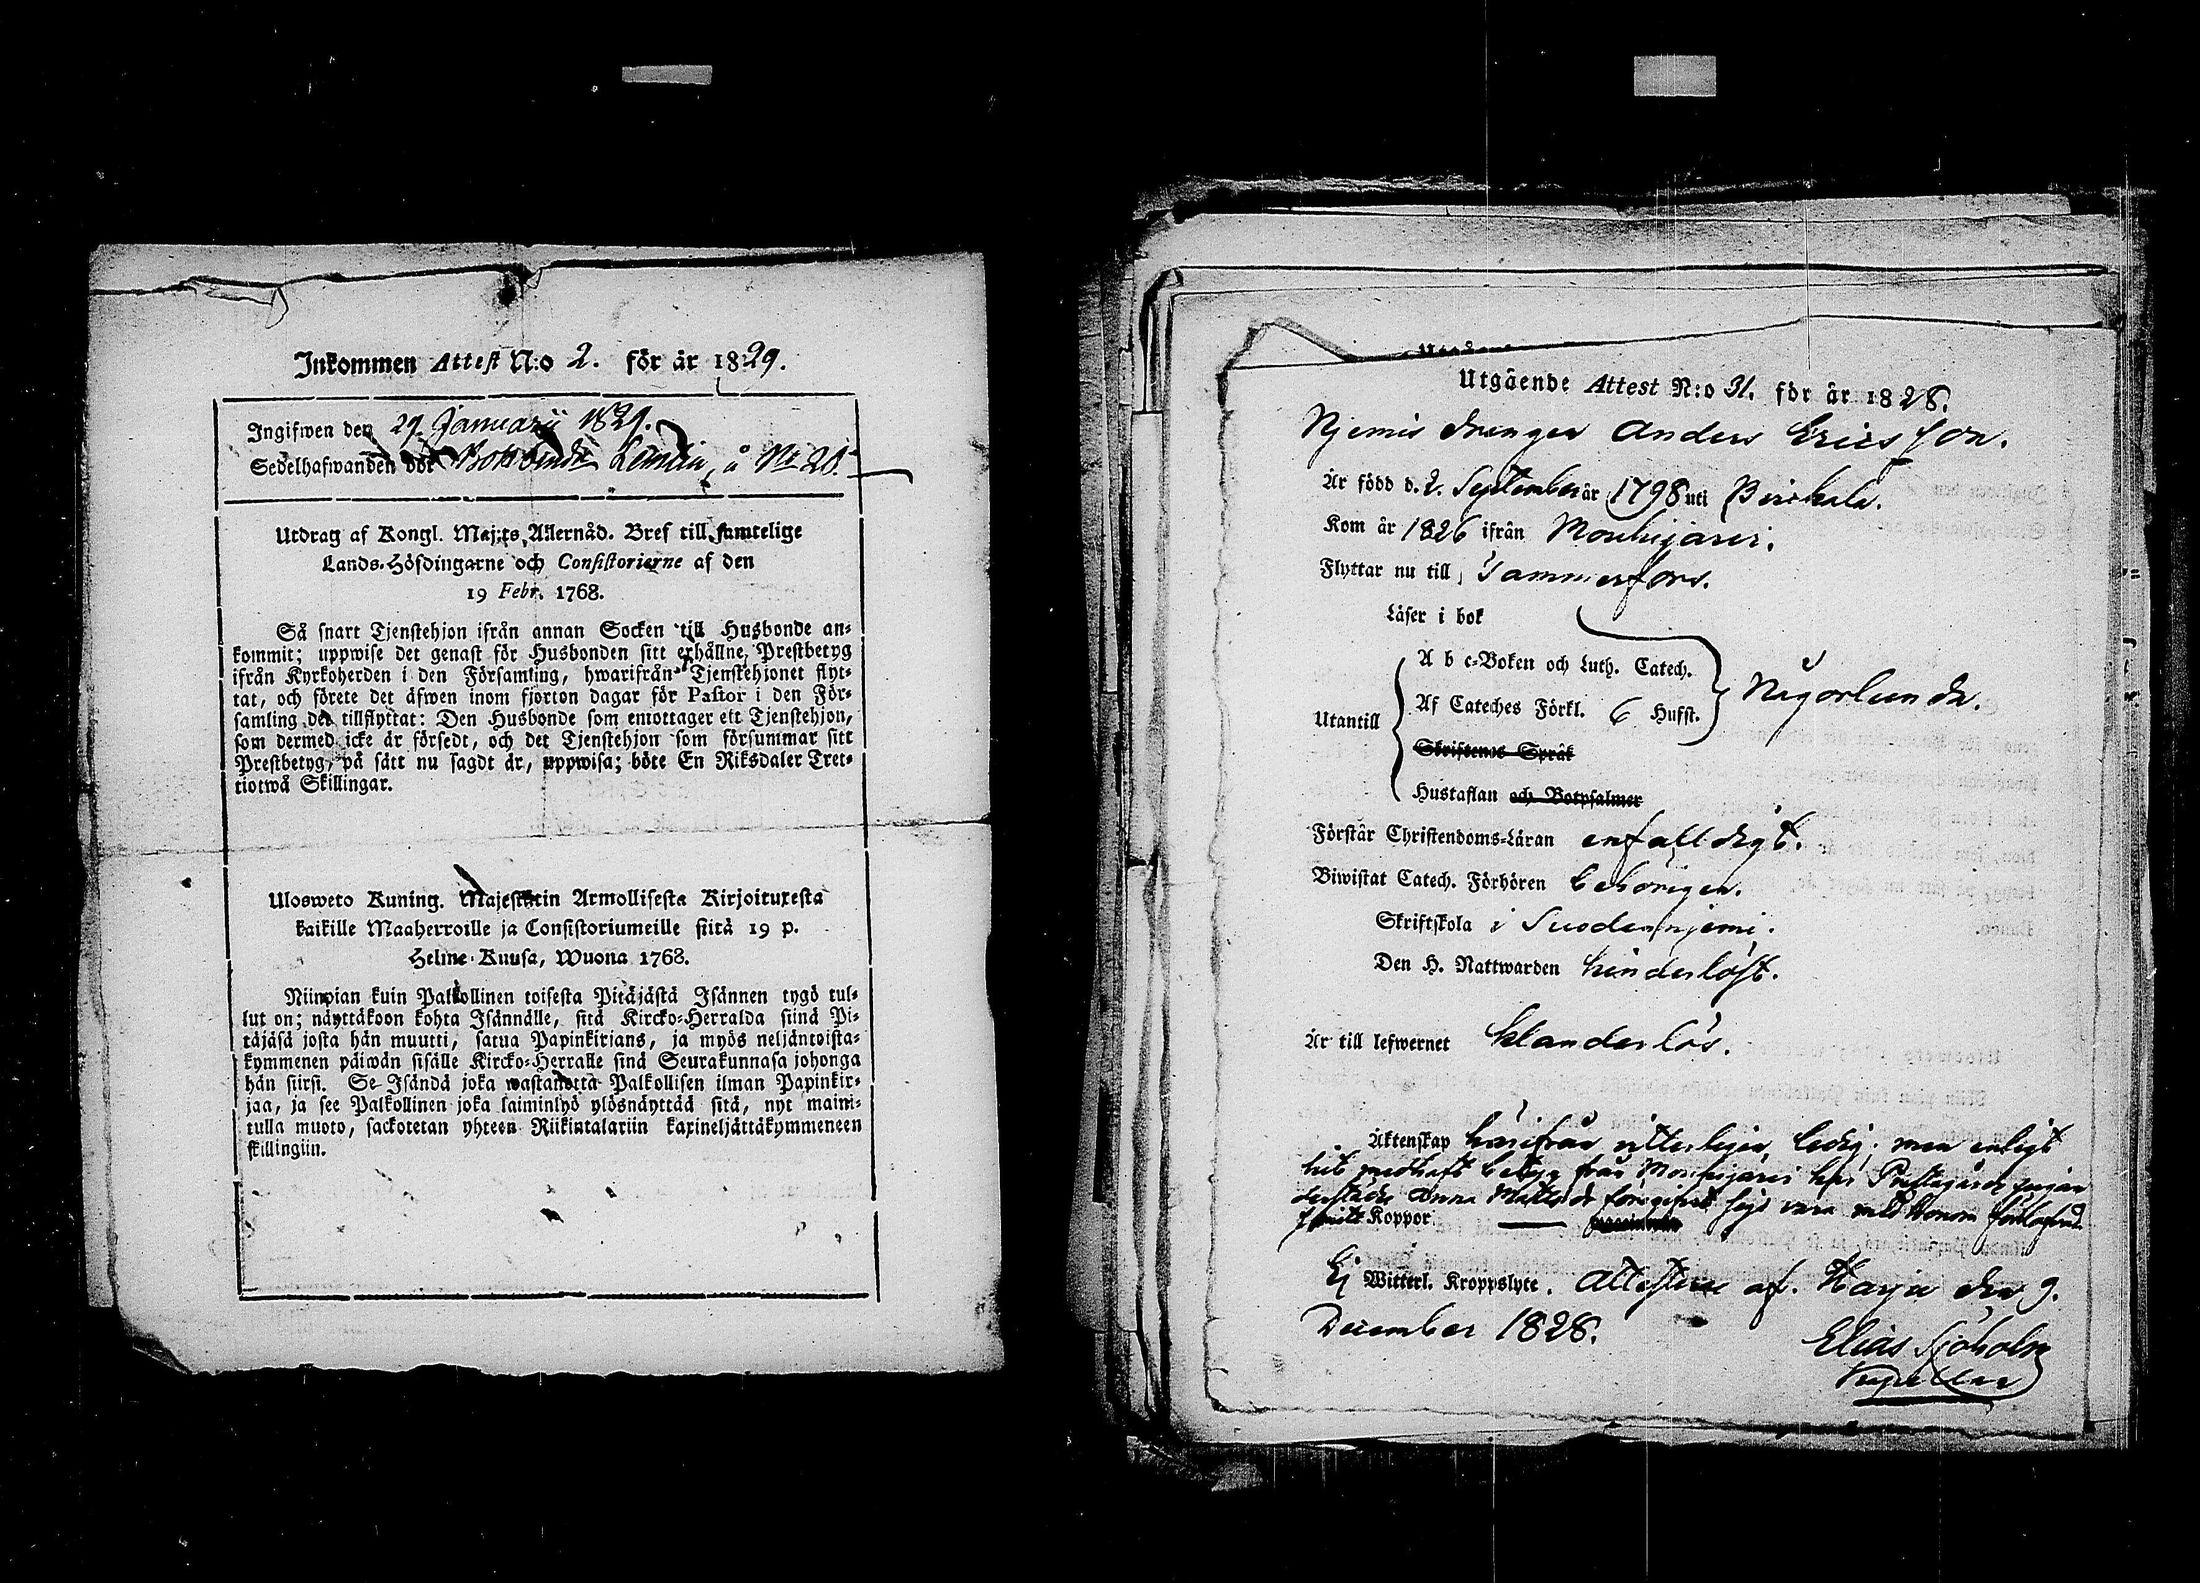 Inkommen Attest N:o 2. för år 1829.
Ingifwen den 29 Januarii 1829.
Sedelhafwanden bör å No 28.
Utdrag af Kongl. Maj:ts Allernåd. Bref till samtelige
Lands-Höfdingarne och Consistorierne af den
19 Febr. 1768.
Så snart Tjenstehjon ifrån annan Socken till Husbonde an-
kommit; uppwise det genast för Husbonden sitt erhållne Prestbetyg
ifrån Kyrkoherden i den Församling, hwarifrån Tjenstehjonet flyt-
tat, och förete det äfwen inom fjorton dagar för Pastor i den För-
samling det tillflyttat: Den Husbonde som emottager ett Tjenstehjon,
som dermed icke är försedt, och det Tjenstehjon som försummar sitt
Prestbetyg, på sätt nu sagdt är, uppwisa; böte En Riksdaler Tret-
tiotwå Skillingar.
Ulosweto Kuning. Majestetin Armollisesta Kirjoituxesta
kaikille Maaherroille ja Consistoriumeille siitä 19 p.
Helme-Kuusa, Wuona 1768.
Niinpian kuin Palkollinen toisesta Pitäjästä Isännen tygö tul-
lut on; näyttäkoon kohta Isännälle, sitä Kircko-Herralda siinä Pi-
täjäsä josta hän muutti, saatua Papinkirjans, ja myös neljäntoista-
kymmenen päiwän sisälle Kircko-Herralle sinä Seurakunnasa johonga
hän siirsi. Se Isändä joka wastanotta Palkollisen ilman Papinkir-
jaa, ja see Palkollinen joka laiminlyö ylösnäyttää sitä, nyt maini-
tulla muoto, sackotetan yhteen Riikintalariin kaxineljättäkymmeneen
skillingiin.
Utgående Attest N:o 31. för år 1828.
Njemis drängen Anders Ericsson.
Är född d. 2. September år 1798 uti Birckala.
Kom år 1826 ifrån Mouhijärvi.
Flyttar nu till Tammerfors.
Läser i bok
A b c-Boken och Luth. Catech.
Utantill Af Cateches Förkl. 6 Hufst. Någorlunda.
Skriftenes Språk
Hustaflan och Botpsalmer
Förstår Christendoms-Läran enfalldigt.
Biwistat Catech. Förhören behörigen.
Skriftskola i Suodenniemi.
Den H. Nattwarden hinderlöst.
Är till lefwernet klanderlös.
Äktenskap härifrån vitterligen ledig; men enligt
hit medhaft betyg från Mouhijärvi har Prestagårds pigan
derstädes Anna Mattsdr föregifvit sig vara med honom förlofvad.
Koppor.
Ej Witterl. Kroppslyte. Attesteras af. Harju den 9.
December 1828.
Elias Sjöholm
Kapellan